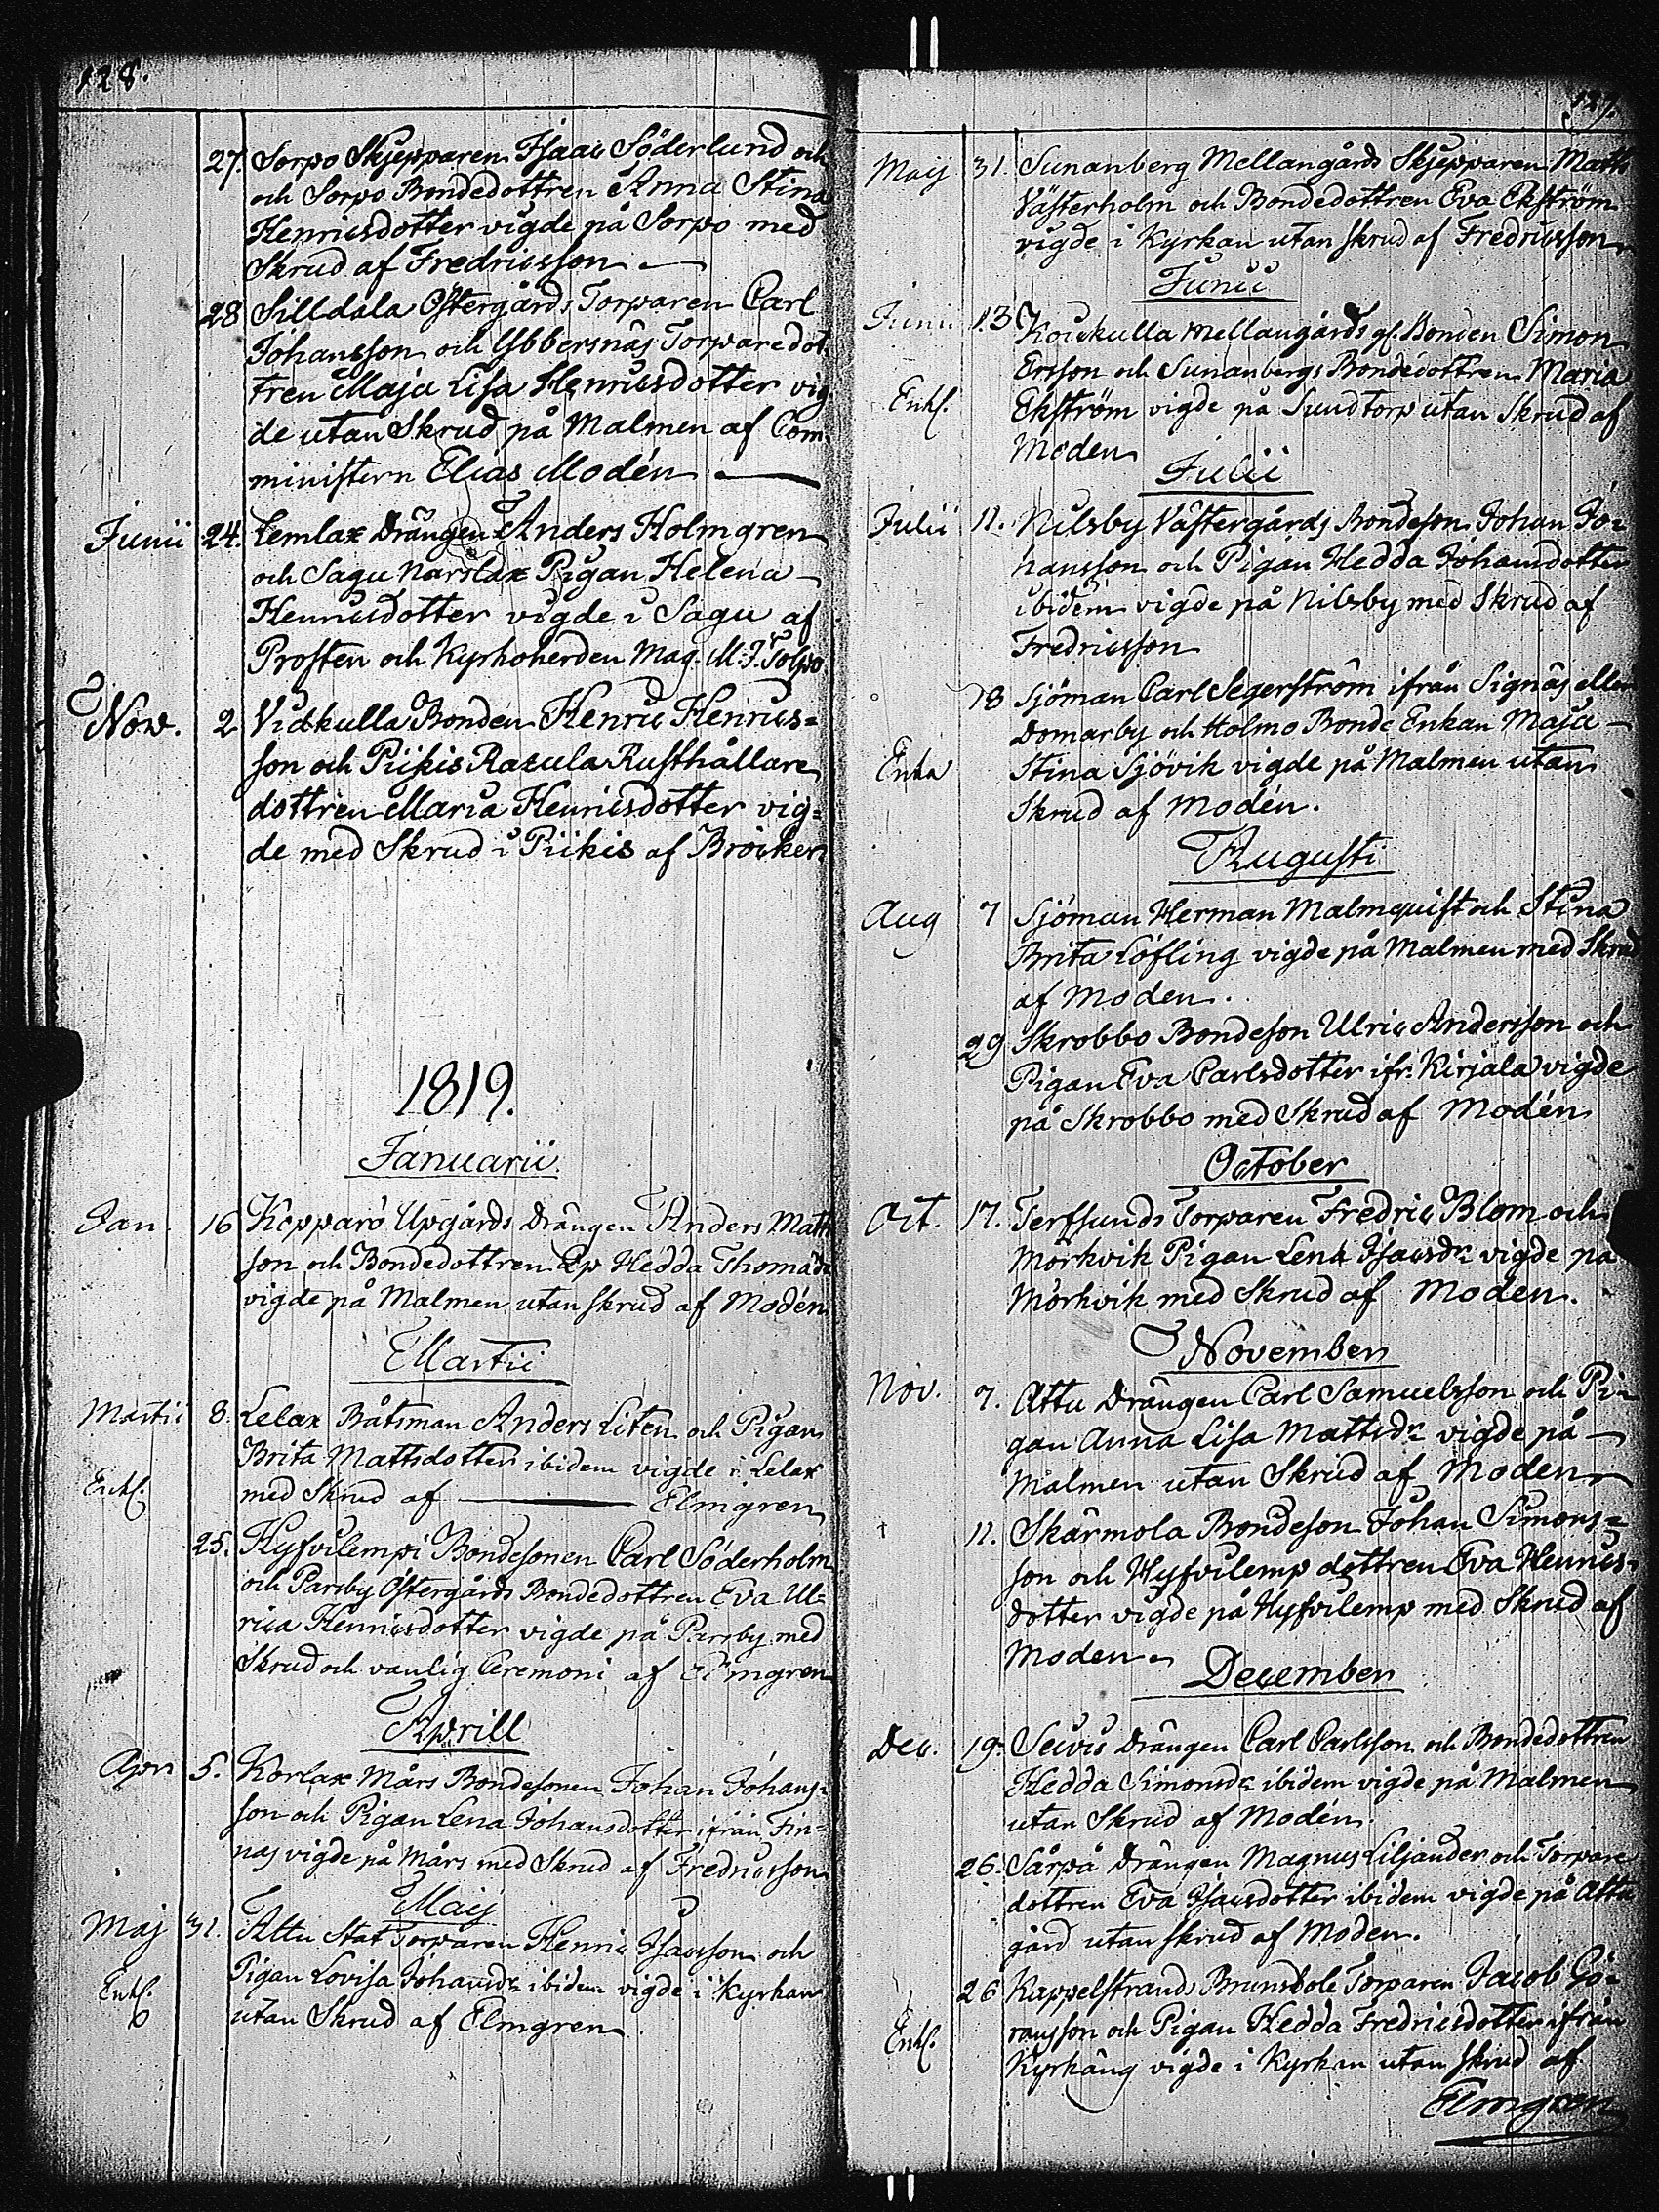 128.
27. Sorpo Skjepparen Isaac Söderlund och
och Sorpo Bondedottren Anna Stina
Henricsdotter vigde på Sorpo med
Skrud af Fredricsson
28 Silldala Östergårds Torparen Carl
Johansson och Ybbersnäs Torparedot
tren Maja Lisa Henricsdotter vig
de utan Skrud på Malmen af Com-
ministern Elias Modén
Junii 24. Lemlax Drängen Anders Holmgren
och Sagu Narslax Pigan Helena
Henricsdotter vigde i Sagu af
Prosten och Kyrkoherden Mag. M. J. Tolpo
Nov. 2 Vickulla Bonden Henric Henrics=
son och Piikis Raxula Rusthållare
dottren Maria Henricsdotter vig=
de med Skrud i Piikis af Bröcker
1819.
Januarii
Jan. 16 Kopparö Upgårds Drängen Anders Matts
son och Bondedottren Hedda Thomasdr
vigde på Malmen utan skrud af Modén
Martii
Martii 8. Lelax Båtsman Anders Liten och Pigan
Brita Mattsdotter ibidem vigde i Lelax
Enkl. med Skrud af Elmgren
25. Hyfvilempi Bondesonen Carl Söderholm
och Parsby Östergårds Bondedottren Eva Ul=
rica Henricsdotter vigde på Parsby med
Skrud och vanlig Ceremoni af Elmgren
Aprill
Apr. 5. Korlax Mårs Bondesonen Johan Johans=
son och Pigan Lena Johansdotter ifrån Fin=
nas vigde på Mårs med Skrud af Fredricsson
Maij
Maj 31. Attu Stat Torparen Henric Isacsson och
Enkl. Pigan Lovisa Johansdr ibidem vigde i Kyrkan
utan Skrud af Elmgren
129.
Maij 31. Sunanberg Mellangårds Skjepparen Matts
Västerholm och Bondedottren Eva Ekström
vigde i Kyrkan utan skrud af Fredricsson
Junii
Junii 13 Koukulla Mellangårds gl. Bonden Simon
Ersson och Sunanbergs Bondedottren Maria
Enkl. Ekström vigde på Sundtorp utan Skrud af
Moden
Julii
Julii 11. Nilsby Västergårds Bondeson Johan Jo=
hansson och Pigan Hedda Johansdotter
ibidem vigde på Nilsby med Skrud af
Fredricsson
18 Sjöman Carl Segerström ifrån Signäs eller
Domarby och Holmo Bonde Enkan Maja
Enka Stina Sjövik vigde på Malmen utan
Skrud af Modén.
Augusti
Aug 7 Sjöman Herman Malmquist och Stina
Brita Löfling vigde på Malmen med Skrud
af Moden.
29 Skrobbo Bondeson Ulric Andersson och
Pigan Eva Carlsdotter ifr. Kirjala vigde
på Skrobbo med Skrud af Modén
October
Oct. 17. Terfsunds Torparen Fredric Blom och
Mörkvik Pigan Lena Isacsdr vigde på
Mörkvik med Skrud af Moden.
November
Nov. 7. Attu Drängen Carl Samuelsson och Pi=
gan Anna Lisa Mattsdr vigde på
Malmen utan Skrud af Moden
11. Skärmola Bondeson Johan Simons=
son och Hyfvilemp dottren Eva Henrics=
dotter vigde på Hyfvilemp med Skrud af
Moden.
December
Dec. 19. Seivis Drängen Carl Carlsson och Bondedottren
Hedda Simonsdr ibidem vigde på Malmen
utan Skrud af Modén.
26. Sårpå Drängen Magnus Liljander och Torpare
dottren Eva Isacsdotter ibidem vigde på Attu
gård utan skrud af Moden.
26 Kappelstrands Brunsbole Torparen Jacob Gö=
ransson och Pigan Hedda Fredricsdotter ifrån
Enkl. Kyrkäng vigde i Kyrkan utan skrud af
Elmgren